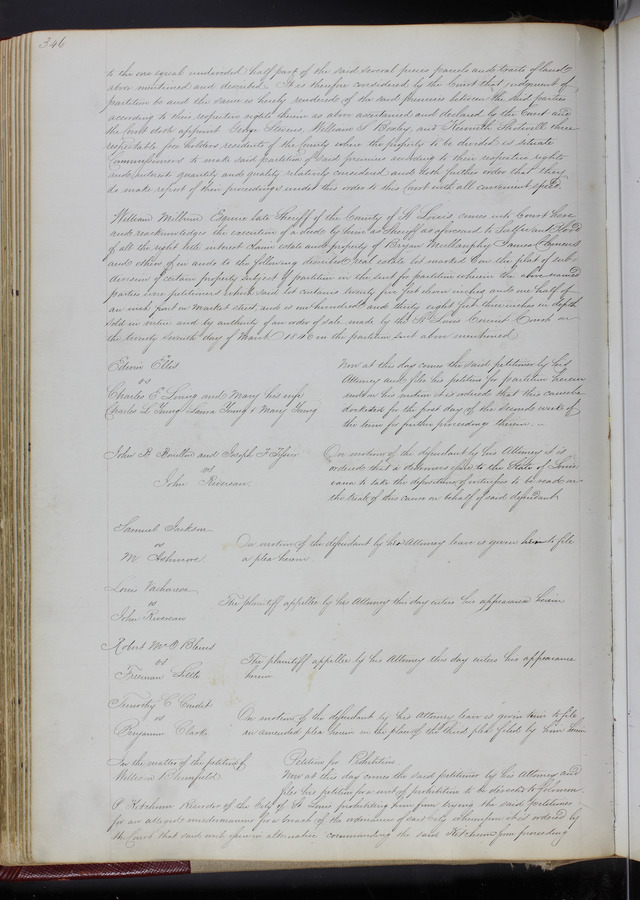 346
to the one equal undivided half part of the said several pieces parcels and tracts of land
above mentioned and described. It is therefore considered by the Court that judgment of
partition be and the same is hereby rendered of the said premises between the said parties
according to their respective rights therein as above ascertained and declared by the Court and
the Court doth appoint George Stevens, William S and Kenneth three
respectable free holders residents of the County where the property to be divided is situate
Commissioners to make said partition of said premises according to their respective rights
and interests quantity and quality relatively considered and doth further order that they
do make report of their proceedings under this order to this Court with all convenient speed.
William Milburn Esquire late Sheriff of the County of St Louis comes into Court here
and acknowledges the execution of a deed by him as Sheriff as aforesaid to
of all the right title interest claim estate and property of Bryan Mullanphy James
and others of in and to the following described real estate lot marked on the plat of sub-
division of certain property subject of partition in the suit for partition wherein the above named
parties were petitioners which said lot contains twenty five feet inches and one half of
an inch front on Market street and is one hundred and thirty eight feet three inches in depth
sold in virtue and by authority of an order of sale made by the St Louis Circuit Court on
the twenty seventh day of March 1840 in the partition suit above mentioned
Edwin Ellis
vs
Charles E Young and Mary his wife
Charles L Young Laura Young & Mary Young
Now at this day comes the said petitioner by his
Attorney and files his petition for partition herein
and on his motion it is ordered that this cause be
docketed for the first day of the second week of
the term for further proceedings therein.
John B and Joseph F
vs
John Rivereau
On motion of the defendant by his Attorney it is
ordered that a issue to the State of Louis
iana to take the deposition of witnesses to be read on
the trial of this cause on behalf of said defendant
Samuel Jackson
vs
M Ashmore
On motion of the defendant by his Attorney leave is given him to file
a plea herein
Louis Vachereau
vs
John Rivereau
The plaintiff appellee by his Attorney this day enters his appearance herein
Robert McO Blenis
vs
Freeman Little
The plaintiff appellee by his Attorney this day enters his appearance
herein
Timothy C
vs
Benjamin Clark
On motion of the defendant by his Attorney leave is given him to file
an amended plea herein in the place of the third plea filed by him herein
In the matter of the petition of
William
Petition for Prohibition
Now at this day comes the said petitioner by his Attorney and
files his petition for a writ of prohibition to be directed to Solomon
P Ketchum Recorder of the City of St Louis prohibiting him from trying the said petitioner
for an alleged misdemeanor for a breach of the ordinances of said City whereupon it is ordered by
the Court that said writ issue in alternative commanding the said Ketchum from proceeding